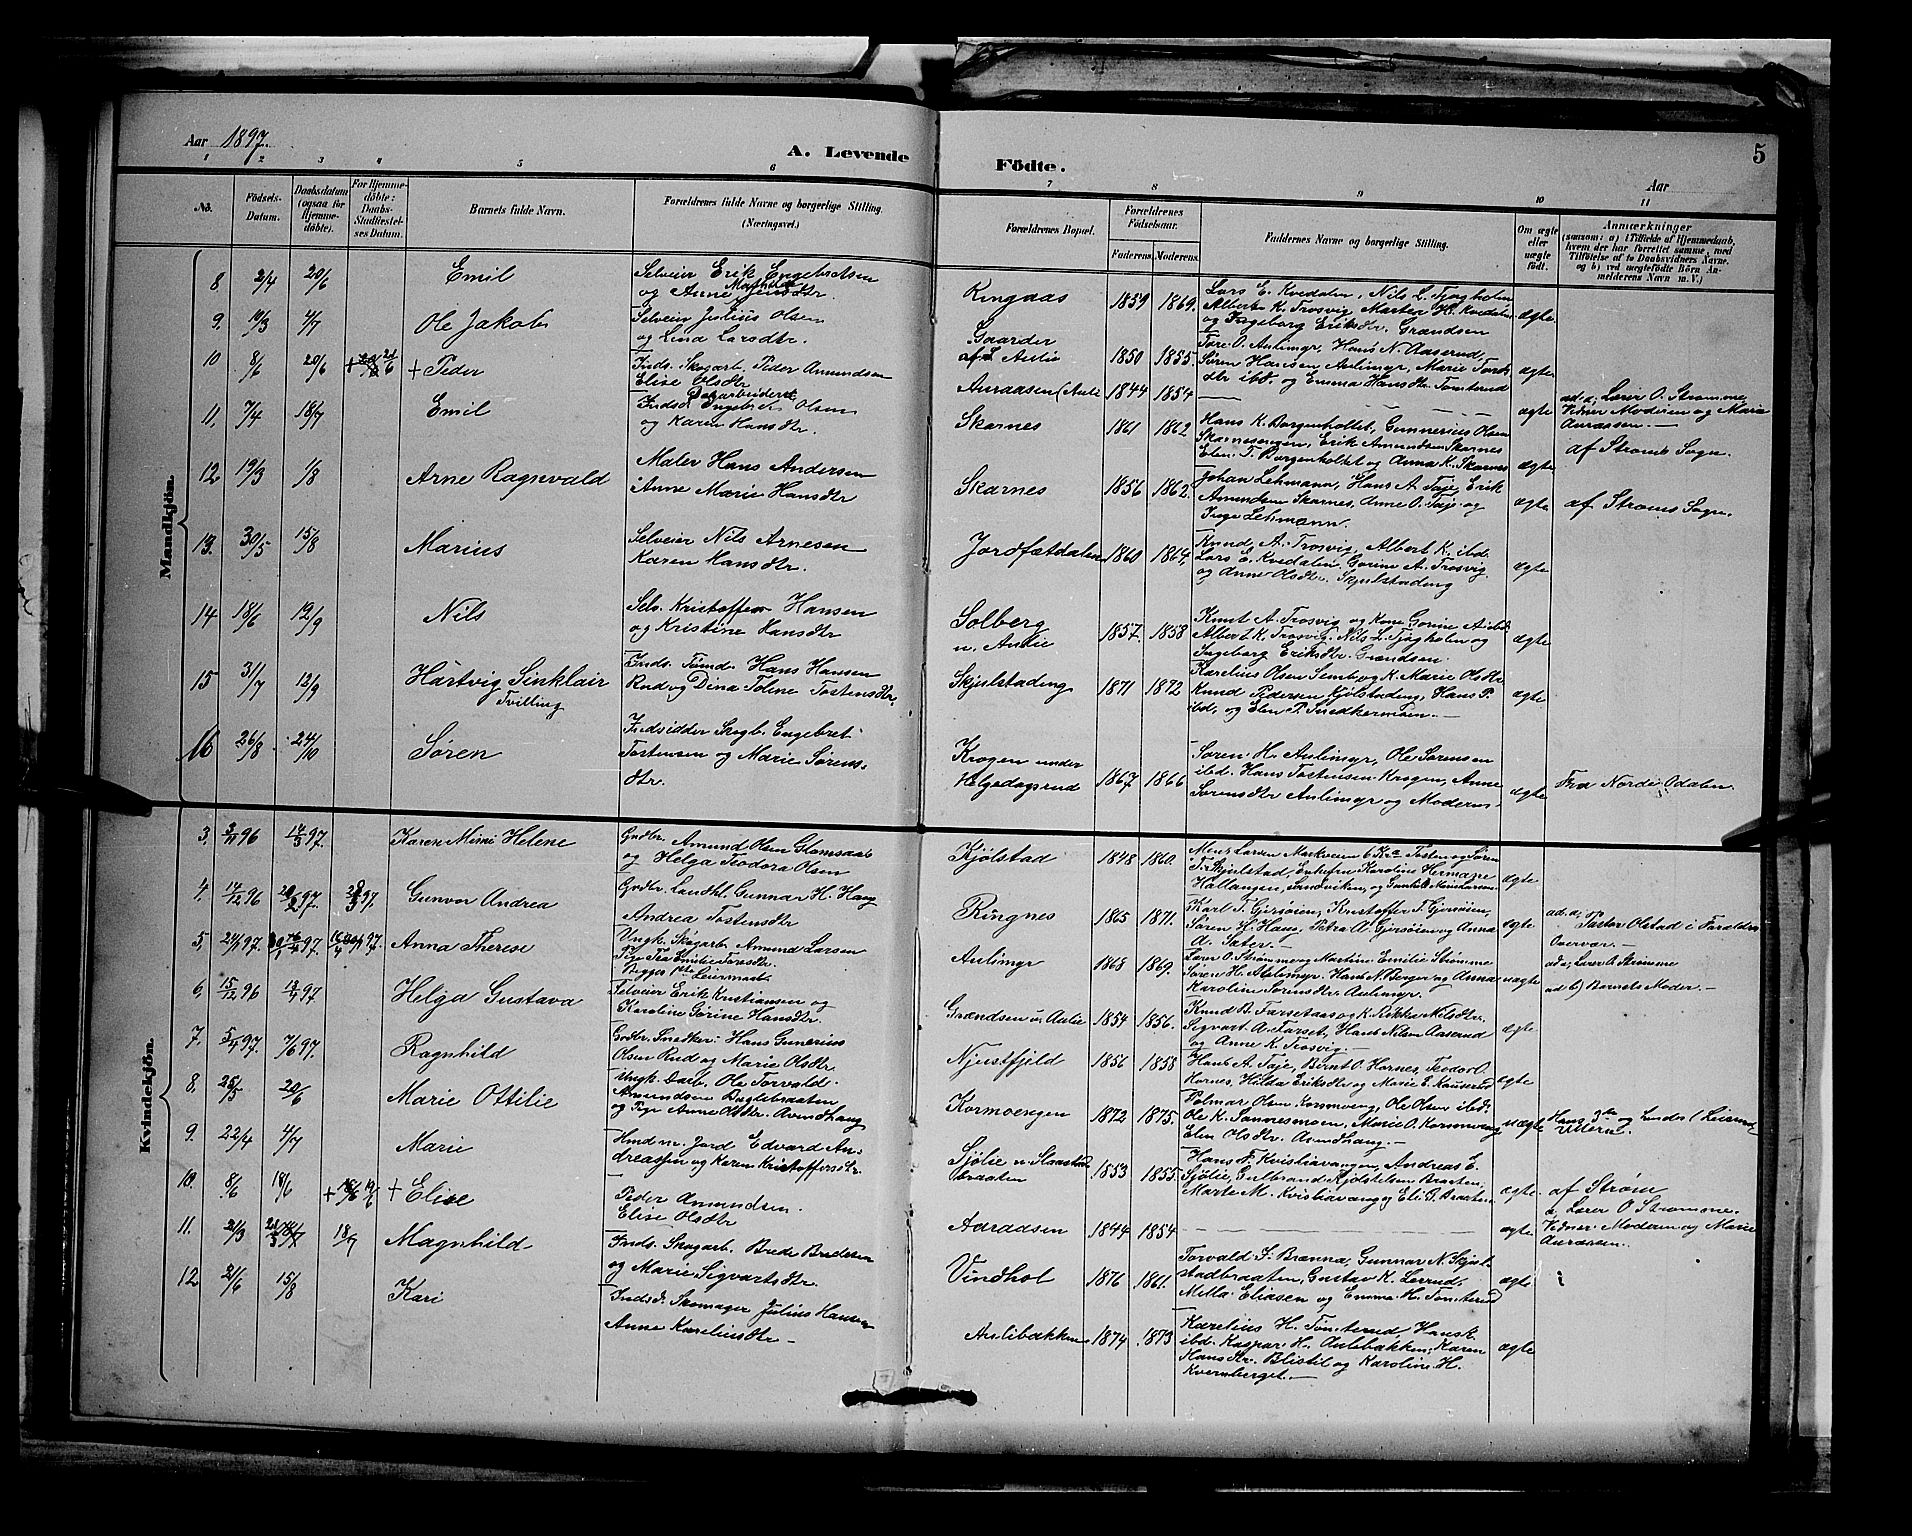 Aar 1897.
A. Levende
Födte.
Aar
5
1 2 3 4 5 6
7 8 9 10 11
No.
Födsels-
Datum.
Daabsdatum
(ogsaa for
Hjemme-
döbte).
For Hjemme-
döbte:
Daabs-
Stadfæstel-
ses Datum.
Barnets fulde Navn.
Forældrenes fulde Navne og borgerlige Stilling.
(Næringsvei.)
Forældrenes Bopæl.
Forældrenes
Födselsaar.
Faderens. Moderens.
Faddernes Navne og borgerlige Stilling.
Om ægte
eller
uægte
födt.
Anmærkninger
(saasom: a) i Tilfælde af Hjemmedaab,
hvem der har forrettet samme, med
Tilföielse af to Daabsvidners Navne.
og b) ved uægtefödte Börn An-
melderens Navn m. V.)
Mandkjön.
8 2/4 20/6 Emil
Selveier Erik Engebretsen
og Anne Mathilde
Ringaas 1859 1869.
Lars E. Kvedalen, Nils L. Tjagholen
Albert K. Trosvig, Marter H. Kvedalen
og Ingeborg Eriksdtr. Grændsen
ægte
9. 4/7 Ole Jakob
Selveier Julius Olsen
og Lina Larsdtr.
Gaarder
af L Aulie 1850 1855.
Tore O. Aulimyr, Hans N. Aaserud,
Søren Hansen Aulimyr, Marie Tores
dtr ibd. og Emma Hansdtr Tomterud
ægte
10 8/6 20/6 + Peder
Inds. Skogarb. Peder Amundsen
Elise Olsdtr
Auraasen (Aulie 1844 1854
ægte
ad. a; Lærer O. Strømme,
Vidner Moderen og Marie
Auraasen. —
11, 7/4 18/7 Emil
Indsd. Engebret Olsen
og Karen Hansdtr.
Skarnes 1861 1862
Hans K. Borgenholtet, Gunnerius Olsen
Skarnesengen, Erik Amundsen Skarnes
Elen T. Borgenholtet og Anna K. Skarnes
ægte
af Strøms Sogn.
12 19/3 1/8 Arne Ragnvald
Maler Hans Andersen
Anne Marie Hansdtr
Skarnes 1856 1862.
Johan Lehmann, Hans A. Taje, Erik
Amundsen Skarnes, Anne O. Taje og
Inga Lehmann.
ægte
af Strøms Sogn.
13. 30/5 15/8 Marius
Selveier Nils Arnesen
Karen Hansdtr.
Jordfætdalen 1860 1864,
Knud A. Trosvig, Albert K. ibd.
Lars E. Kvedalen, Gorine A. Trosvig
og Anne Olsdtr. Skjulstadeng
ægte
14 18/6 12/9 Nils
Selv. Kristoffer Hansen
og Kristine Hansdtr
Solberg
u. Aulie 1857. 1858
Knut A. Trosvig og Kone Gorine A. ibd
Albert K. Trosvig, Nils L. Tjagholen og
Ingeborg Eriksdtr. Grændsen.
ægte
15 31/7 12/9 Hartvig Sinklair
Tvilling
Inds. Tømd. Hans Hansen
Rud og Dina Toline Tostensdtr,
Skjulstadeng 1871 1872
Karelius Olsen Semb og K. Marie Olsdtr
Knud Pedersen Kjølstadeng, Hans P.
ibd, og Elen P. Snedkermoen. —
ægte
16 26/8 24/10 Søren
Indsidder Skogb. Engebret
Tostensen og Marie Sørens-
dtr.
Krogen under
Helgedagsrud 1867 1866
Søren H. Aulimyr, Ole Sørensen
ibd. Hans Tostensen Krogen, Anne
Sørensdtr Aulimyr og Moderen
ægte
Fra Nordre Odalen.
Kvindekjön.
3, 96 97. Karen Mimi Helene
Grdbr. Amund Olsen Glomsaas
og Helga Teodora Olsen
Kjølstad 1848 1860.
Skjulstad, Enkefru Karoline Hermanse
ægte
4, 96 97. 97. Gunvor Andrea
Grdbr. Landhl. Gunnar H. Haug
Andrea Tostensdtr
Ringnes 1865 1871.
Karl T. Gjersøien, Kristoffer T. Gjersøien,
Søren H. Haug, Petra A. Gjersøien og Anna
A. Sater.
ægte
ad. a; Pastor Olstad i Forældre
Overvær. —
5, 97. 97. 97. Anna Therese
Ungk. Skogarb. Amund Larsen
Pige Fra Emilie Toresdtr.
Begges 1ste Leiermaal
Aulimyr 1868 1869.
Lærer O. Strømme og Martine Emilie Strømme
Søren H. Aulimyr. Hans N. Berger og Anna
Karoline Sørensdtr Aulimyr.
uægte
ad a; Lærer O. Strømme
ad b) Barnets Moder. —
6, 15/12 96 97 Helga Gustava
Selveier Erik Kristiansen og
Karoline Sørine Hansdtr.
Grændsen u. Aulie 1854 1856.
Knud B. Farsetaas og K. Rikke Nilsdtr.
Sigvart A. Farset, Hans Nilsen Aaserud
og Anne K. Trosvig. —
ægte
7. 5/4 97. 7/6 97. Ragnhild
Grdbr. Snedker. Hans Gunerius
Olsen Rud og Marie Olsdtr.
Njustfjeld 1856 1858
Hans A. Taje, Bernt O. Hornes, Teodor O.
Hornes, Hilda Eriksdtr og Marie E. Knuserud
ægte
8. 25/5 20/6 Marie Ottilie
Ungk. Darb. Ole Torvald.
Amundsen Daglebraaten
og Pige Anne Olsdtr. Arindhaug
Kormoengen 1872 1875.
Polmar Olsen Kormoeng, Ole Olsen ibd.
Ole K. Sannesmoen, Marie O. Kormoeng
Elen Olsdtr. Arindhaug. —
uægte
Hans 3die og hendes 1 Leierm
9. 22/4 4/7 Marie
Jord Edvard An-
dreassen og Karen Kristoffersdtr.
Sjölie u Slaastad
braaten 1853 1855.
Hans F. Kvistiavangen, Andreas E.
Sjölie, Gulbrand Kjölstelsen Braaten,
Marte M. Kvistiavang og Eli G. Braaten
ægte
af Strøm
10. 8/6 18/6 + Elise
Peder Amundsen.
Elise Olsdtr
Auraasen 1844 1854
ægte
a, Lærer O. Strømme.
Vidner Moderen og Marie
Auraasen.
11. 21/3 18/7 Magnhild
Inds. Skogarb. Brede Bredesen
og Marie Sigvartsdtr.
Vindhol 1876 1861.
Torvald S. Brænna, Gunnar N. Skjul-
stadbraaten, Gustav K. Lerrud.
Milla Eliasen og Emma H. Tomterud
ægte
12 2/6 15/8 Kari
Indsd. Skomager Julius Hansen
Anne Kareliusdtr —
Aulibakken 1874 1873
Karelius H. Tomterud Hans K.
ibd. Kaspar H. Aulebakken, Karen
Hansdtr. Blistil og Karoline H.
Kvernberget. —
ægte